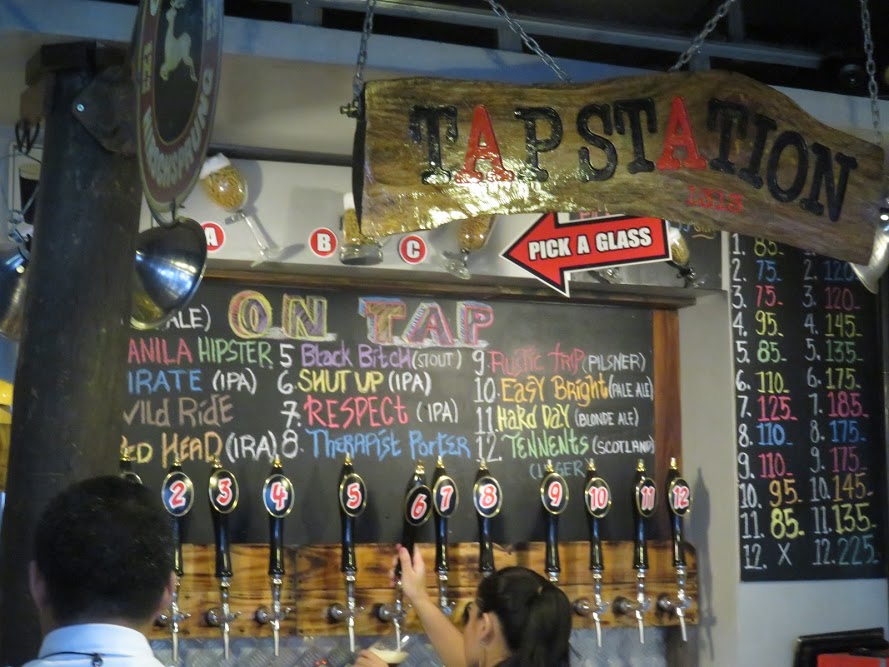 TAP STATION
A
B
C
PICK A GLASS
ON TAP
ALE)
ANILA HIPSTER
IRATE (IPA)
Wild Ride
ED HEAD (IRA)
5 Black Bitch (STOUT)
6. SHUT UP (IPA)
7. RESPECT (IPA)
8. THERAPIST PORTER
9. Rustic Trip (PILSNER)
10. Easy Bright (PALE ALE)
11. HARD DAY (BLONDE ALE)
12. TENNENTS (SCOTLAND)
(LAGER)
1. 85-
2. 75-
3. 75-
4. 95-
5. 85-
6. 110-
7. 125
8. 110-
9. 110-
10. 95-
11. 85-
12. X
2. 120
3. 120-
4. 145-
5. 135-
6. 175-
7. 185-
8. 175-
9. 175-
10. 145-
11. 135-
12. 225-
2
3
4
5
6
7
8
9
10
11
12